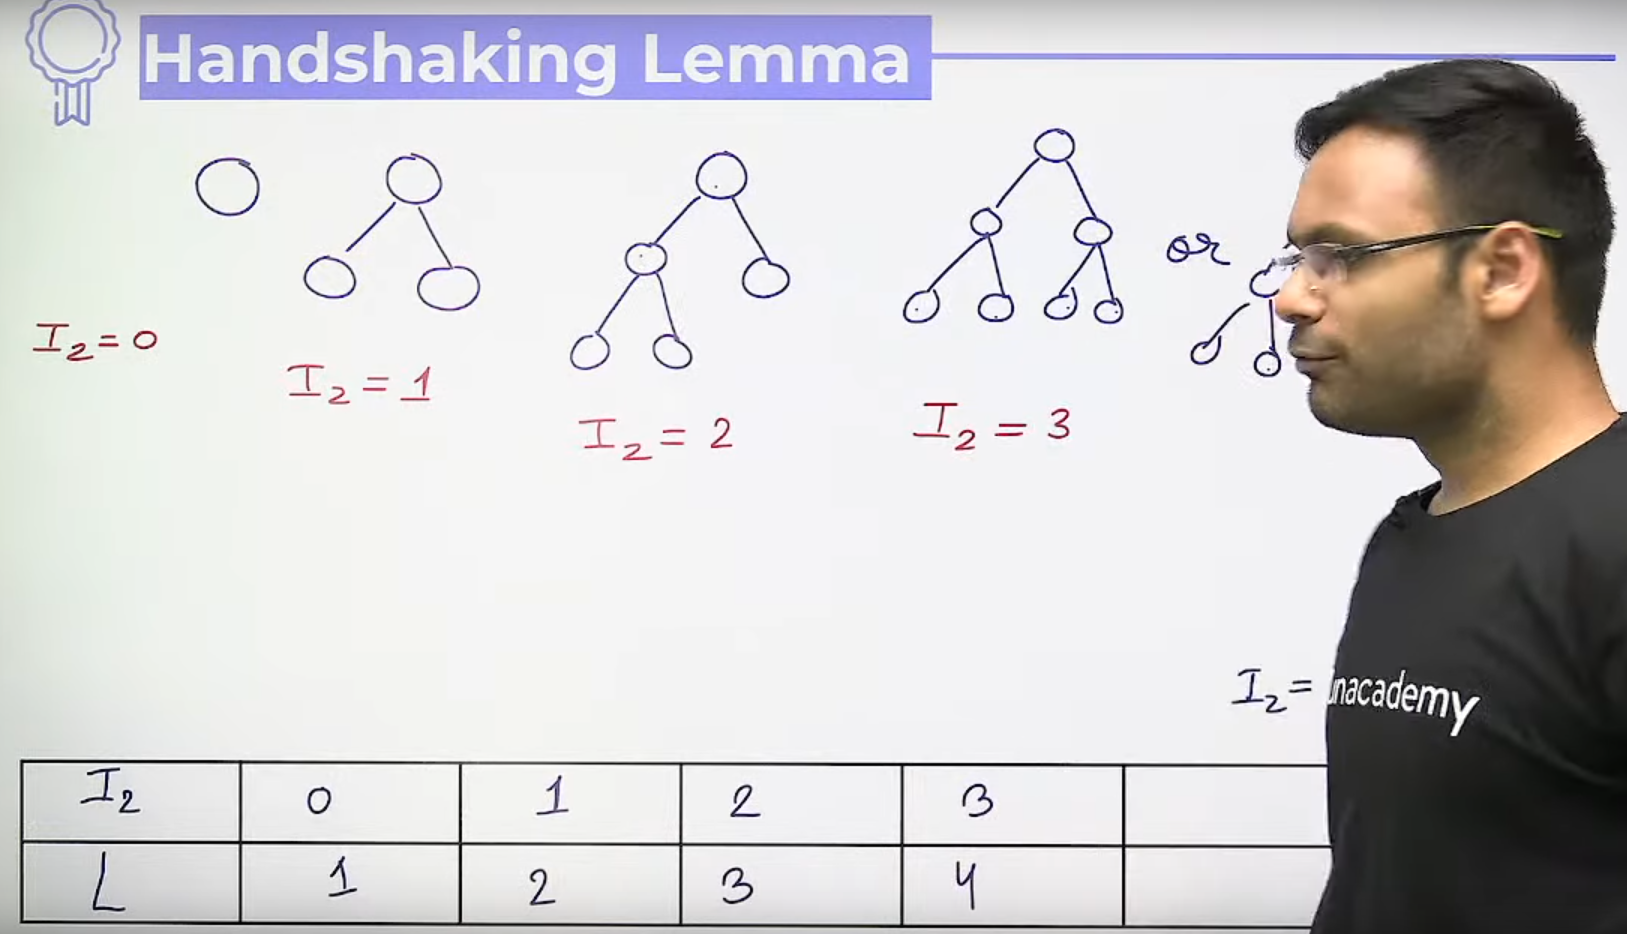 Handshaking Lemma
or
I₂ = 0
I₂ = 1
I₂ = 2
I₂ = 3
I₂ =
unacademy
I₂ 0 1 2 3
L 1 2 3 4